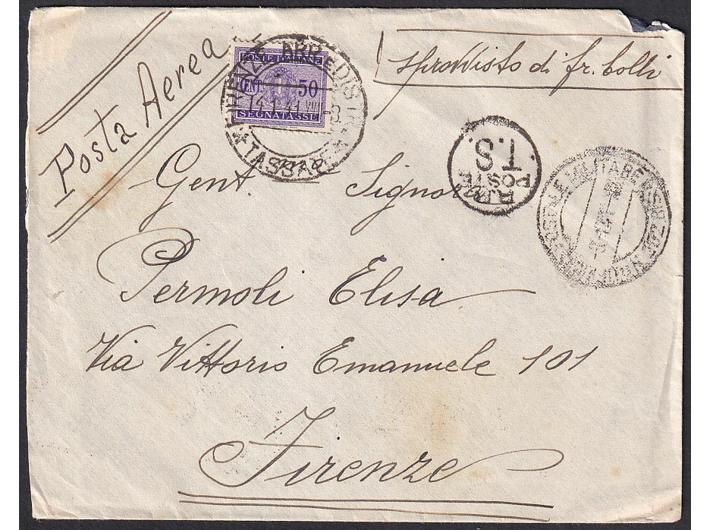 Posta Aerea
sprovvisto di fr. bolli
POSTE ITALIANE
CENT. 50
SEGNATASSE
FIRENZE ARR. E DISTR.
TASSE
R.R.
POSTE
T.S.
POSTALE MILITARE
Gent. Signora
Permoli Elisa
Via Vittorio Emanuele 101
Firenze